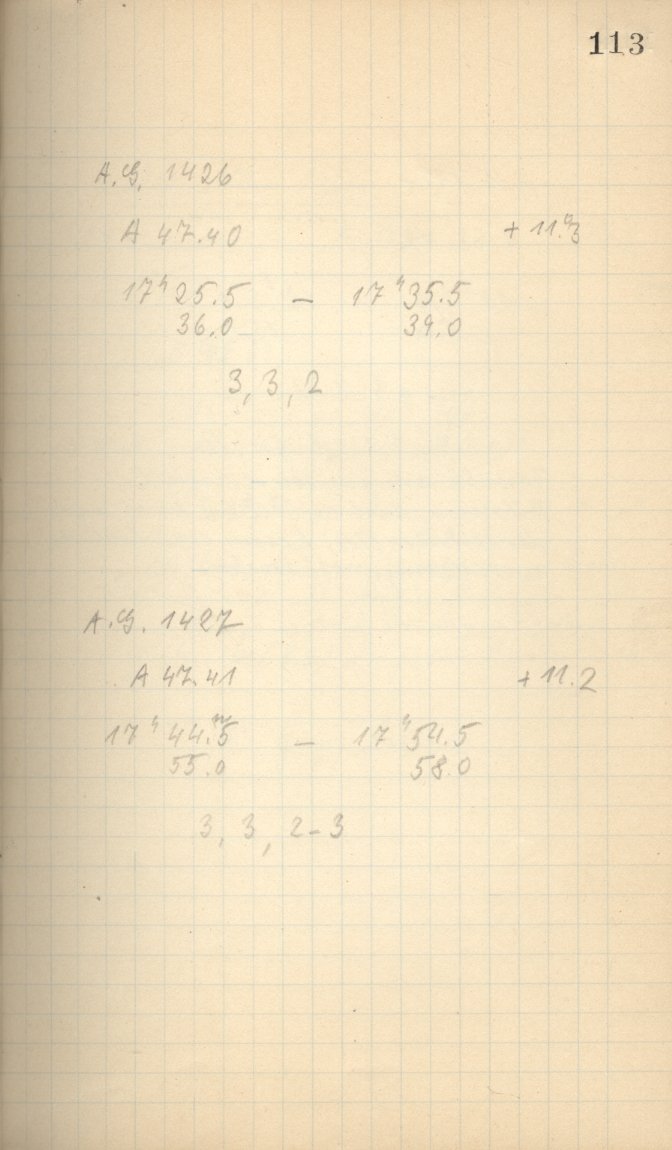 113
A.G. 1426
A 47.40 +11.3
17ʰ25.5 – 17ʰ35.5
36.0 39.0
3, 3, 2
A.G. 1427
A 47.41 +11.2
17ʰ44.ᵐ5 – 17ʰ54.5
55.0 58.0
3, 3, 2-3